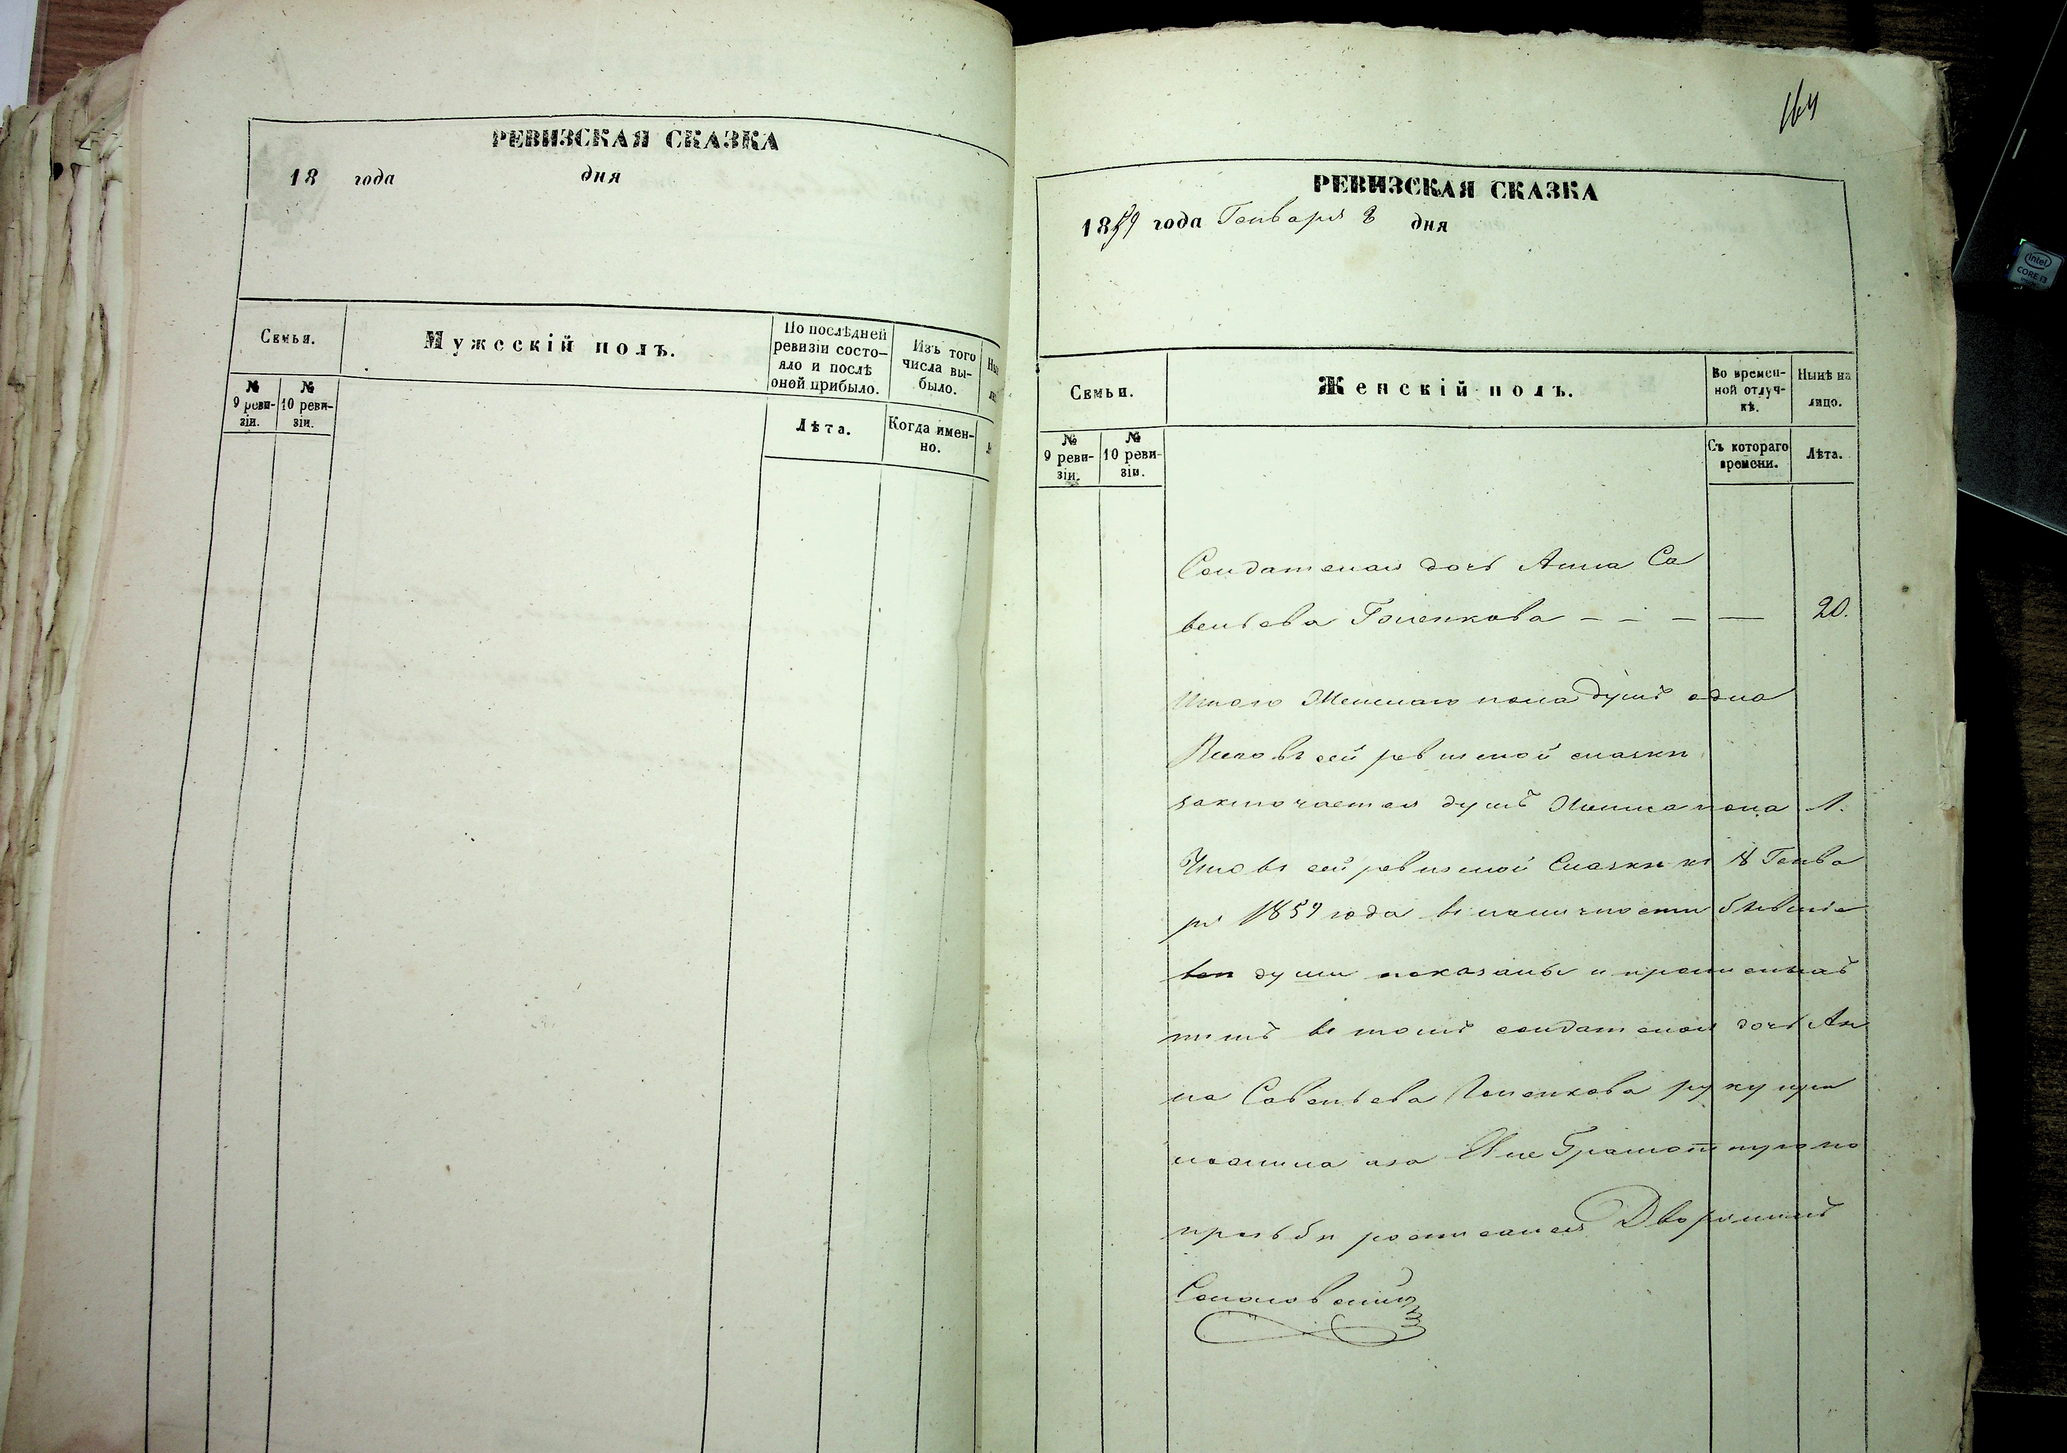 РЕВИЗСКАЯ СКАЗКА
18 года дня
Семьи.
Мужескій полъ.
По послѣдней
ревизіи состо-
яло и послѣ
оной прибыло.
Изъ того
числа вы-
было.
№
9 реви-
зіи.
№
10 реви-
зіи.
Лѣта.
Когда имен-
но.
164
РЕВИЗСКАЯ СКАЗКА
1859 года Генваря 8 дня
Семьи.
Женскій полъ.
Во времен-
ной отлуч-
кѣ.
Нынѣ на
лицо.
№
9 реви-
зіи.
№
10 реви-
зіи.
Съ котораго
времени.
Лѣта.
Солдатская дочь Анна Са
вельева Голенкова - - - — 20.
Итого Женскаго пола душъ одна
Всего въ сей ревизской сказки
заключается душъ Женска пола 1.
Что въ сей ревизской Сказки къ 8 Генва
ря 1859 года въ наличности бывшіе
души показаны и прописныхъ
нетъ въ томъ солдатская дочь Ан
на Савельева Голенкова руку при
ложила а за Неграмотную по
прозьби росписался Дворянинъ
intel
CORE i3